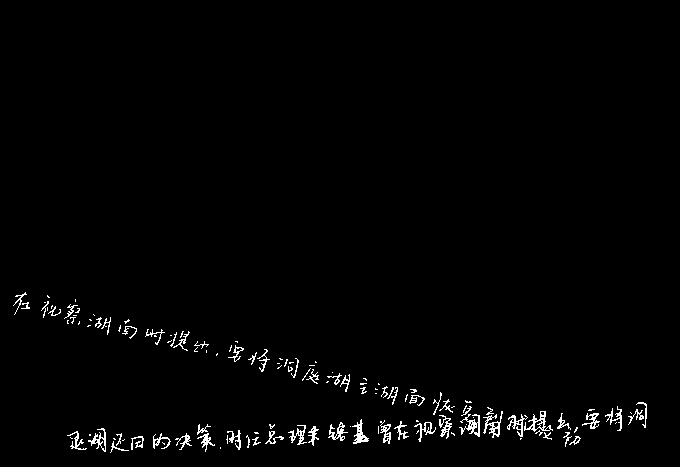 在视察湖面时提出,要将洞庭湖主湖面恢复到
退湖还田的决策.时任总理朱镕基曾在视察湖南时提出,要将洞